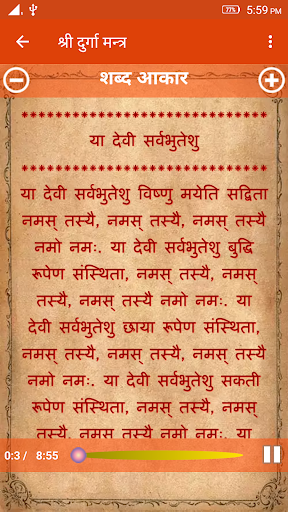 77% 5:59 PM
श्री दुर्गा मन्त्र
शब्द आकार
*************************
या देवी सर्वभुतेशु
*************************
या देवी सर्वभुतेशु विष्णु मयेति सद्विता
नमस् तस्यै, नमस् तस्यै, नमस् तस्यै
नमो नमः. या देवी सर्वभुतेशु बुद्धि
रूपेण संस्थिता, नमस् तस्यै, नमस्
तस्यै, नमस् तस्यै नमो नमः. या
देवी सर्वभुतेशु छाया रूपेण संस्थिता,
नमस् तस्यै, नमस् तस्यै, नमस् तस्यै
नमो नमः. या देवी सर्वभुतेशु सकती
रूपेण संस्थिता, नमस् तस्यै, नमस्
तस्यै, नमस् तस्यै नमो नमः. या
0:3 / 8:55